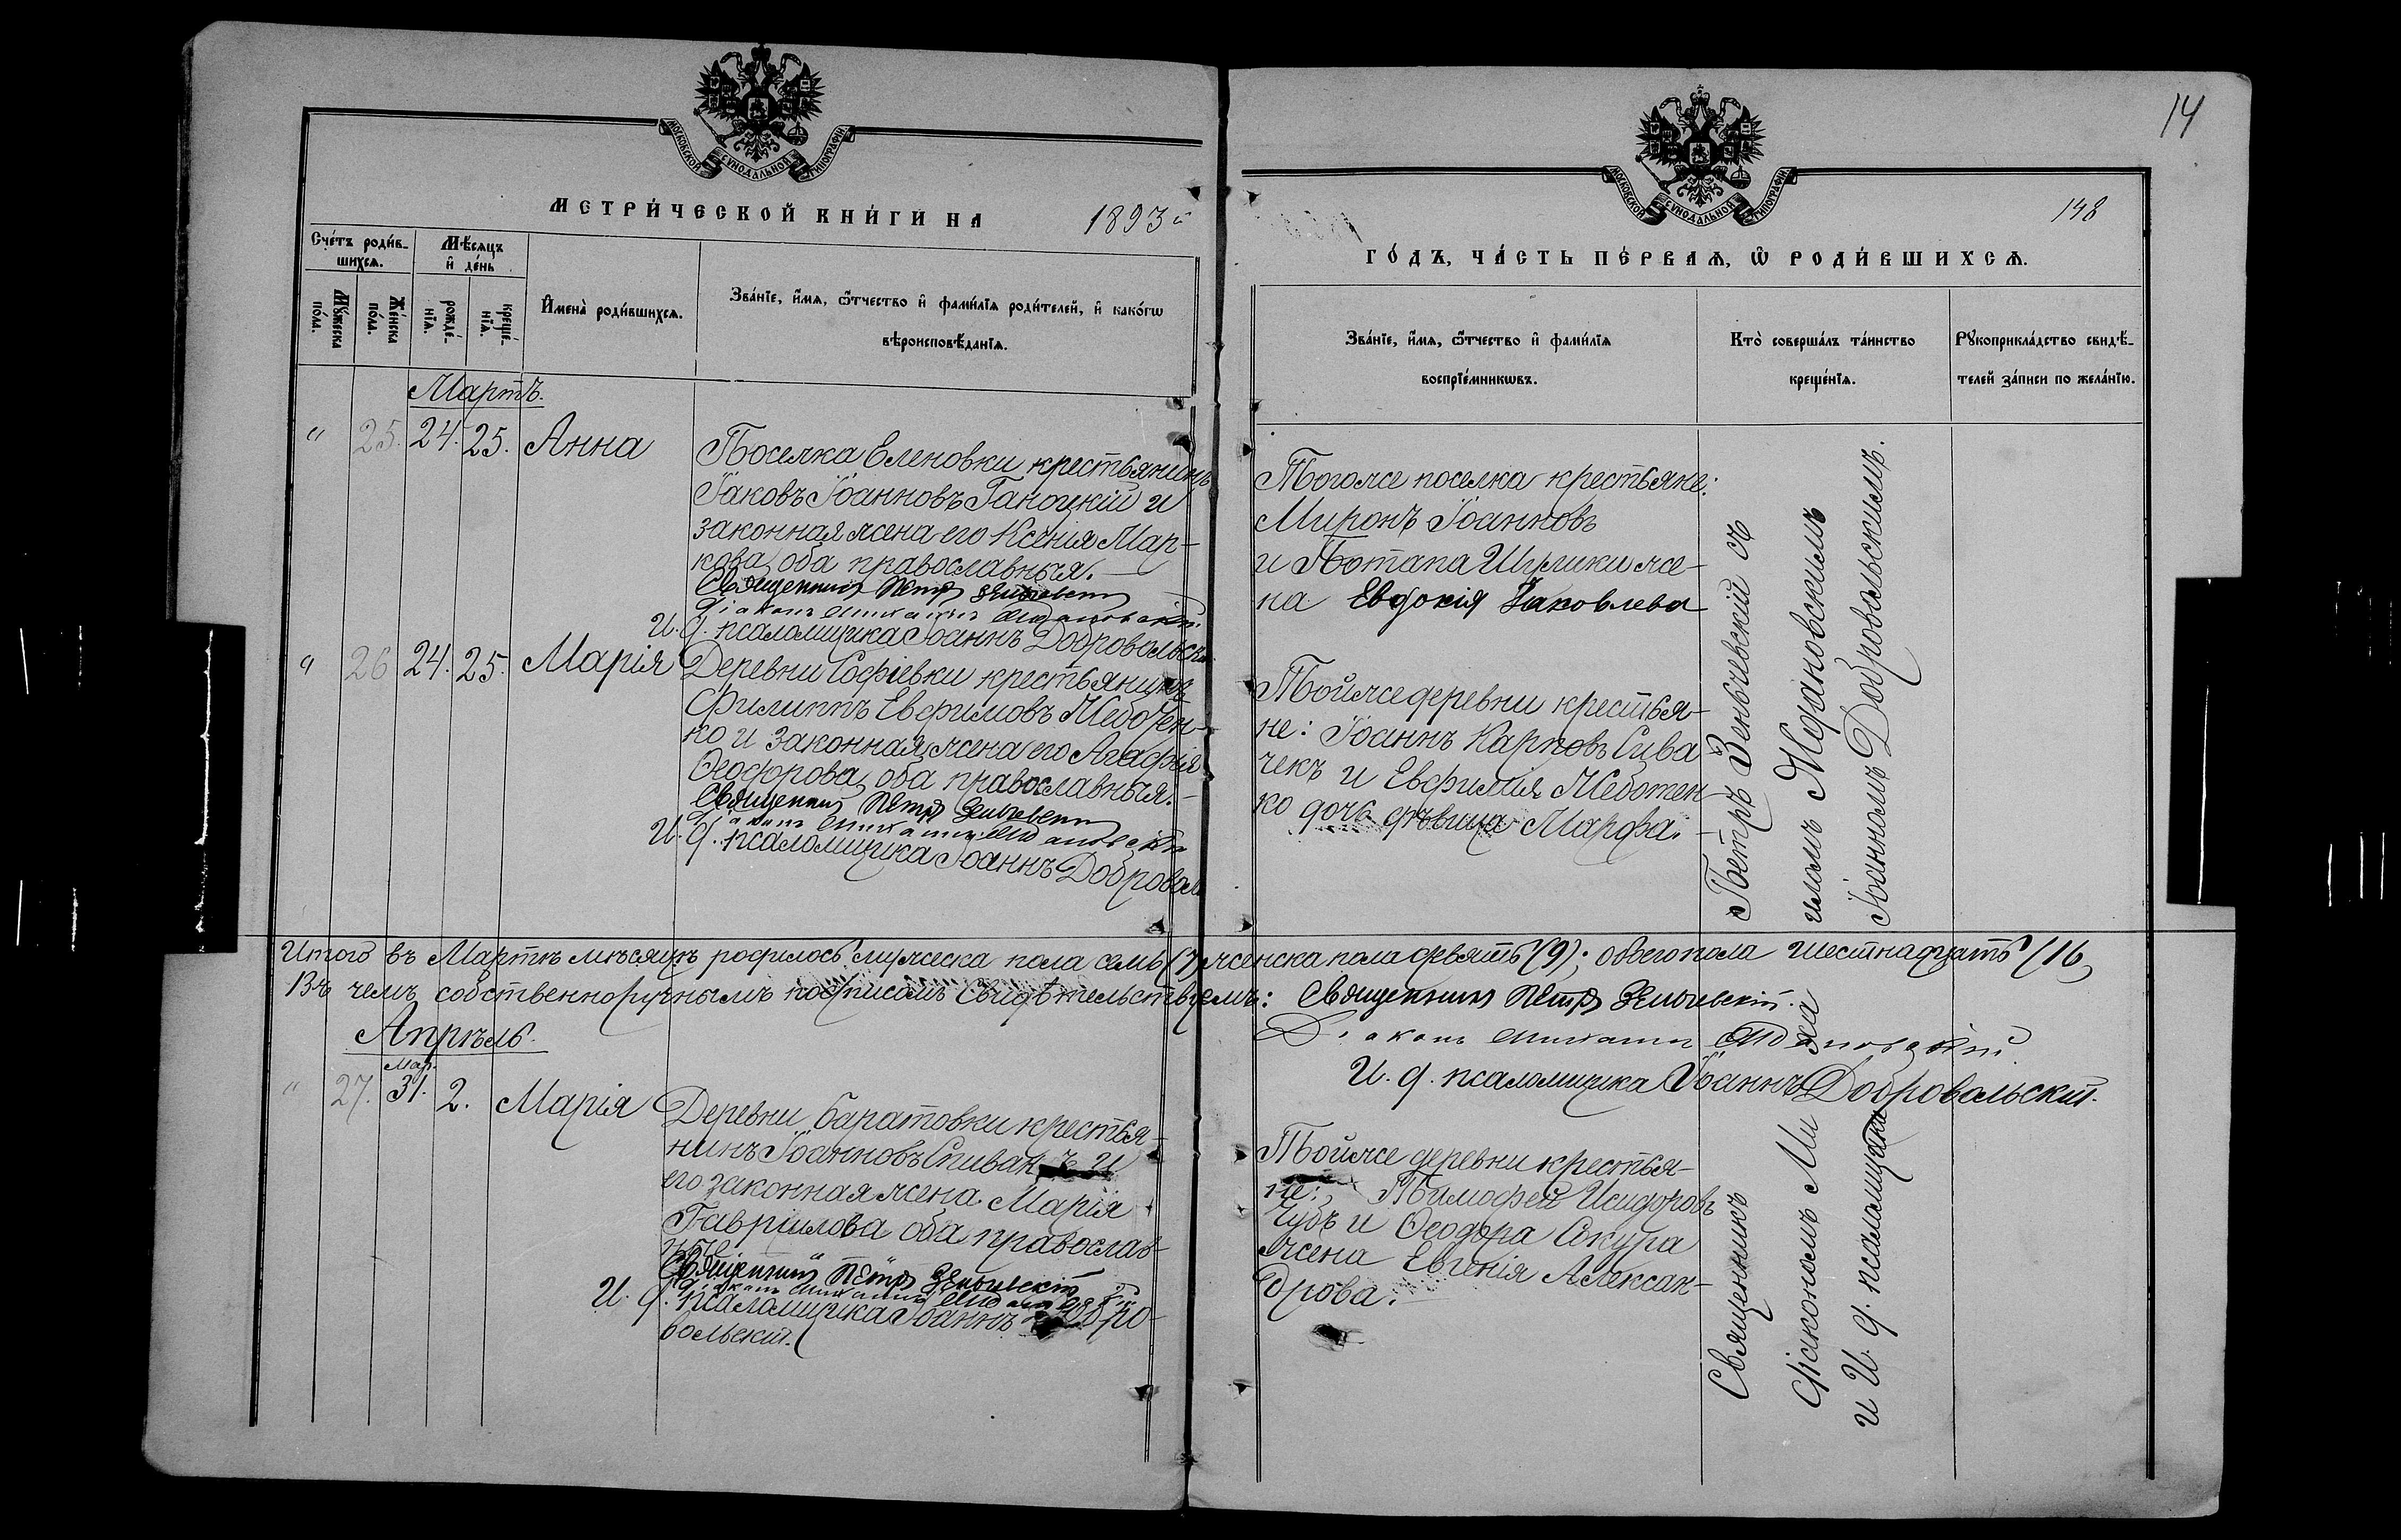 14
148
МОСКОВСКОЙ СѴНОДАЛЬНОЙ ТИПОГРАФІИ
МОСКОВСКОЙ СѴНОДАЛЬНОЙ ТИПОГРАФІИ
МЕТРИ́ЧЕСКОЙ КНИ́ГИ НА 1893й
ГО́ДЪ, ЧА́СТЬ ПЕ́РВАѦ, Ѡ РОДИ́ВШИХСѦ.
Сче́тъ роди́в-
шихсѧ.
Мѣ́сяцъ
и҆ де́нь
Мꙋ́жеска
по́ла.
Же́нска
по́ла.
рожде́-
нїѧ.
креще́-
нїѧ.
И҆мена̀ роди́вшихсѧ.
Зва́нїе, и҆́мѧ, ѻ҆́тчество и҆ фами́лїѧ роди́телей, и҆ како́гѡ
вѣроисповѣ́данїѧ.
Зва́нїе, и҆́мѧ, ѻ҆́тчество и҆ фами́лїѧ
воспрїе́мникѡвъ.
Кто̀ соверша́лъ та́инство
креще́нїѧ.
Рꙋкоприкла́дство свидѣ́-
телей за́писи по жела́нїю.
Мартъ.
" 25. 24. 25. Анна
Поселка Еленовки крестьянинъ
Іаковъ Іоанновъ Ганоцкій и
законная жена его Ксенія Мар-
кова, оба православныя.
Священникъ Петръ Зеньчевскій
Діаконъ
И. д. псаломщика Іоаннъ Добровольскій
Тогоже поселка крестьяне:
Миронъ Іоанновъ
и Потапа Шулики же-
на Евдокія Іаковлева
" 26 24. 25. Марія
Деревни Софіевки крестьянинъ
Филиппъ Евфимовъ Жеботен-
ко и законная жена его Агафія
Ѳеодорова, оба православныя.-
Священникъ Петръ Зеньчевскій
Діаконъ
И. д. псаломщика Іоаннъ Добровол
Тойже деревни крестья-
не: Іоаннъ Карповъ Сива
чекъ и Евфимія Жеботен-
ко дочь дѣвица Марфа.
Итого въ Мартѣ мѣсяцѣ родилось мужеска пола семь (7) женска пола девять (9); обоего пола шестнадцать (16)
Въ чемъ собственноручнымъ подписомъ свидѣтельствуемъ: Священникъ Петръ Зеньчевскій.
Діаконъ
И. д. псаломщика Іоаннъ Добровольскій.
Апрѣль.
Мар.
" 27. 31. 2. Марія
Деревни Баратовки крестья-
нинъ Іоанновъ Спивакъ и
его законная жена Марія
Гавріилова оба православ-
ные
Священникъ Петръ Зеньчевскій
Діаконъ
И. д. псаломщика Іоаннъ Добро-
вольскій.
Тойже деревни крестья-
не: Тимофей Исидоровъ
Чубъ и Ѳеодора Сокура
жена Евгенія Алексан-
дрова.
Священникъ Петръ Зеньчевскій съ
Діакономъ Ми хаиломъ Ждановскимъ
и И. д. псаломщика Іоанномъ Добровольскимъ.